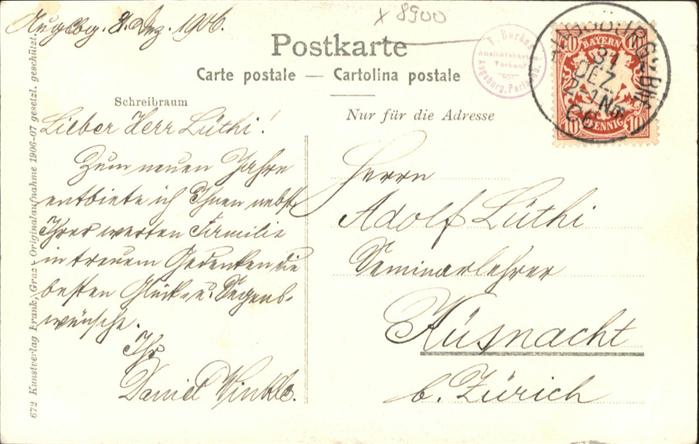 Augsbg. 31. Dez. 1906.
x 8900
Postkarte
Carte postale — Cartolina postale
Schreibraum
Nur für die Adresse
Lieber Herr Lüthi!
Zum neuen Jahre
entbiete ich Ihnen nebst
Ihrer werten Familie
in treuem Gedenken die
besten Glück- u. Segens-
wünsche.
Ihr
Daniel Winkle.
Herrn
Adolf Lüthi
Seminarlehrer
Küsnacht
b. Zürich
AUGSBURG
31
DEZ.
2-3 Nm
06
BAYERN
10 10
PFENNIG
Augsburg,
672 Kunstverlag Frank, Graz. Originalaufnahme 1906-07 gesetzl. geschützt.